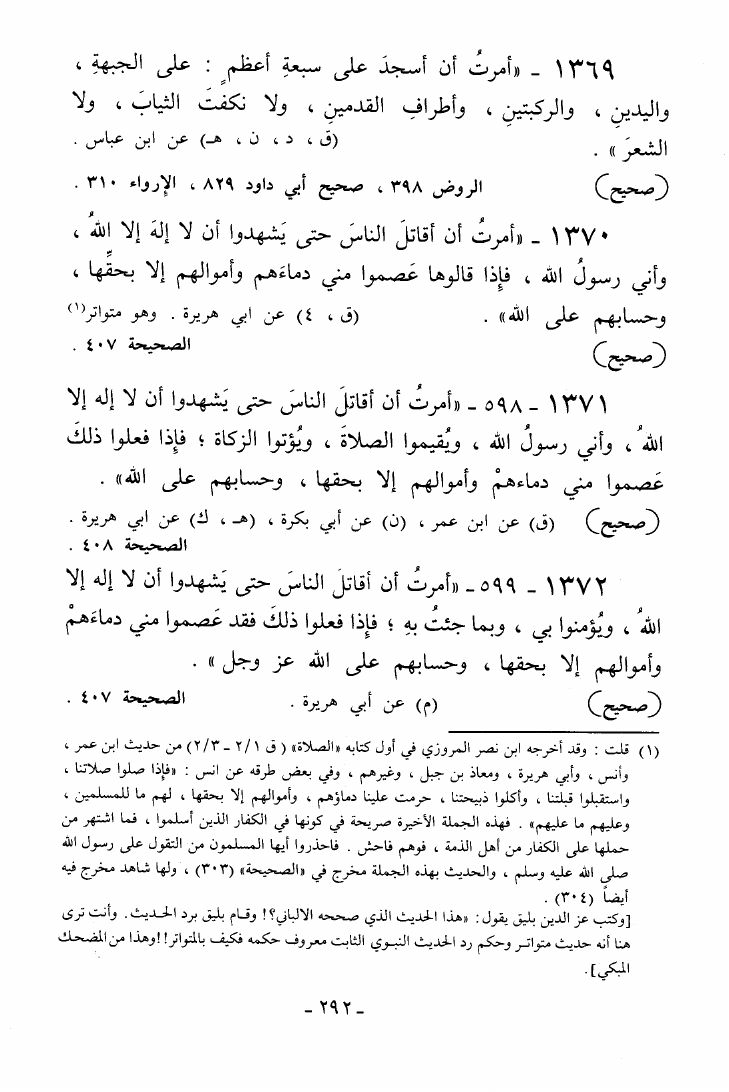 ١٣٦٩ - «أمرتُ أن أسجدَ على سبعةِ أعظمٍ : على الجبهةِ ،
واليدينِ ، والركبتينِ ، وأطرافِ القدمينِ ، ولا نكفتَ الثيابَ ، ولا
الشعرَ » . (ق ، د ، ن ، هـ) عن ابن عباس .
(صحيح) الروض ٣٩٨ ، صحيح أبي داود ٨٢٩ ، الإرواء ٣١٠ .
١٣٧٠ - «أمرتُ أن أقاتلَ الناسَ حتى يَشهدوا أن لا إلهَ إلا اللهُ ،
وأني رسولُ الله ، فإذا قالوها عَصموا مني دماءَهم وأموالهم إلا بحقِّها ،
وحسابهم على الله» . (ق ، ٤) عن ابي هريرة . وهو متواتر(١)
(صحيح) الصحيحة ٤٠٧ .
١٣٧١ - ٥٩٨ - «أمرتُ أن أقاتلَ الناسَ حتى يَشهدوا أن لا إله إلا
اللهُ ، وأني رسولُ الله ، ويُقيموا الصلاةَ ، ويُؤتوا الزكاة ؛ فإذا فعلوا ذلكَ
عَصموا مني دماءهمْ وأموالهم إلا بحقها ، وحسابهم على الله» .
(صحيح) (ق) عن ابن عمر ، (ن) عن أبي بكرة ، (هـ ، ك) عن ابي هريرة .
الصحيحة ٤٠٨ .
١٣٧٢ - ٥٩٩ - «أمرتُ أن أقاتلَ الناسَ حتى يَشهدوا أن لا إله إلا
اللهُ ، ويُؤمنوا بي ، وبما جئتُ بهِ ؛ فإذا فعلوا ذلكَ فقد عَصموا مني دماءَهمْ
وأموالهم إلا بحقها ، وحسابهم على الله عز وجل » .
(صحيح) (م) عن أبي هريرة . الصحيحة ٤٠٧ .
(١) قلت : وقد أخرجه ابن نصر المروزي في أول كتابه «الصلاة» ( ق ٢/١ - ٢/٣) من حديث ابن عمر ،
وأنس ، وأبي هريرة ، ومعاذ بن جبل ، وغيرهم ، وفي بعض طرقه عن انس : «فإذا صلوا صلاتنا ،
واستقبلوا قبلتنا ، وأكلوا ذبيحتنا ، حرمت علينا دماؤهم ، وأموالهم إلا بحقها ، لهم ما للمسلمين ،
وعليهم ما عليهم» . فهذه الجملة الأخيرة صريحة في كونها في الكفار الذين أسلموا ، فما اشتهر من
حملها على الكفار من أهل الذمة ، فوهم فاحش . فاحذروا أيها المسلمون من التقول على رسول الله
صلى الله عليه وسلم ، والحديث بهذه الجملة مخرج في «الصحيحة» (٣٠٣) ، ولها شاهد مخرج فيه
أيضاً (٣٠٤) .
[وكتب عز الدين بليق يقول: «هذا الحديث الذي صححه الالباني؟! وقام بليق برد الحديث. وأنت ترى
هنا أنه حديث متواتر وحكم رد الحديث النبوي الثابت معروف حكمه فكيف بالمتواتر!!وهذا من المضحك
المبكي].
- ٢٩٢ -